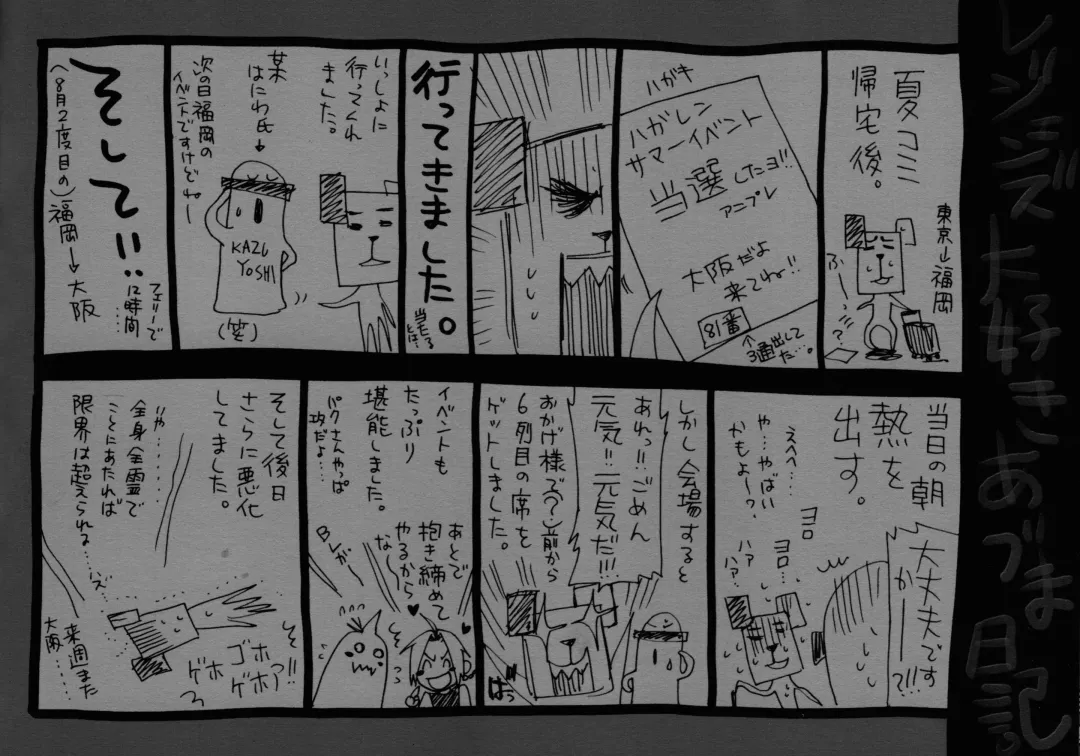 レンジズ大好きあづま日記。
夏コミ
帰宅後。
東京→福岡
ふー
…?
ハガキ
ハガレン
サマーイベント
当選したヨ!!
アニプレ
大阪だよ
来てね!!
81番
↑
3通出して
た…。
行ってきました。
当たる
とは…
いっしょに
行ってくれ
ました。
某
はにわ氏→
KAZU
YOSHI
(笑)
次の日福岡の
イベントですけどねー
そして!!
フェリーで
12時間……
(8月2度目の)福岡→大阪
当日の朝
熱を
出す。
大丈夫です
かーー?!!
えへへ…
や…やばい
かもよー?
ヨロ
ヨロ…
ハア
ハア…
しかし会場すると
あれっ!!ごめん
元気!!元気だ!!!
おかげ様で(?)前から
6列目の席を
ゲットしました。
ぱっ
イベントも
たっぷり
堪能しました。
パクさんやっぱ
攻だよ…
あとで
抱き締めて
やるから
なー
♥
♥
BLが
そして後日
さらに悪化
してました。
いや…
全身全霊で
ことにあたれば
限界は超えられる…ズ
ゴホ
ゲホゴホ
ゲホア!!
来週また
大阪…